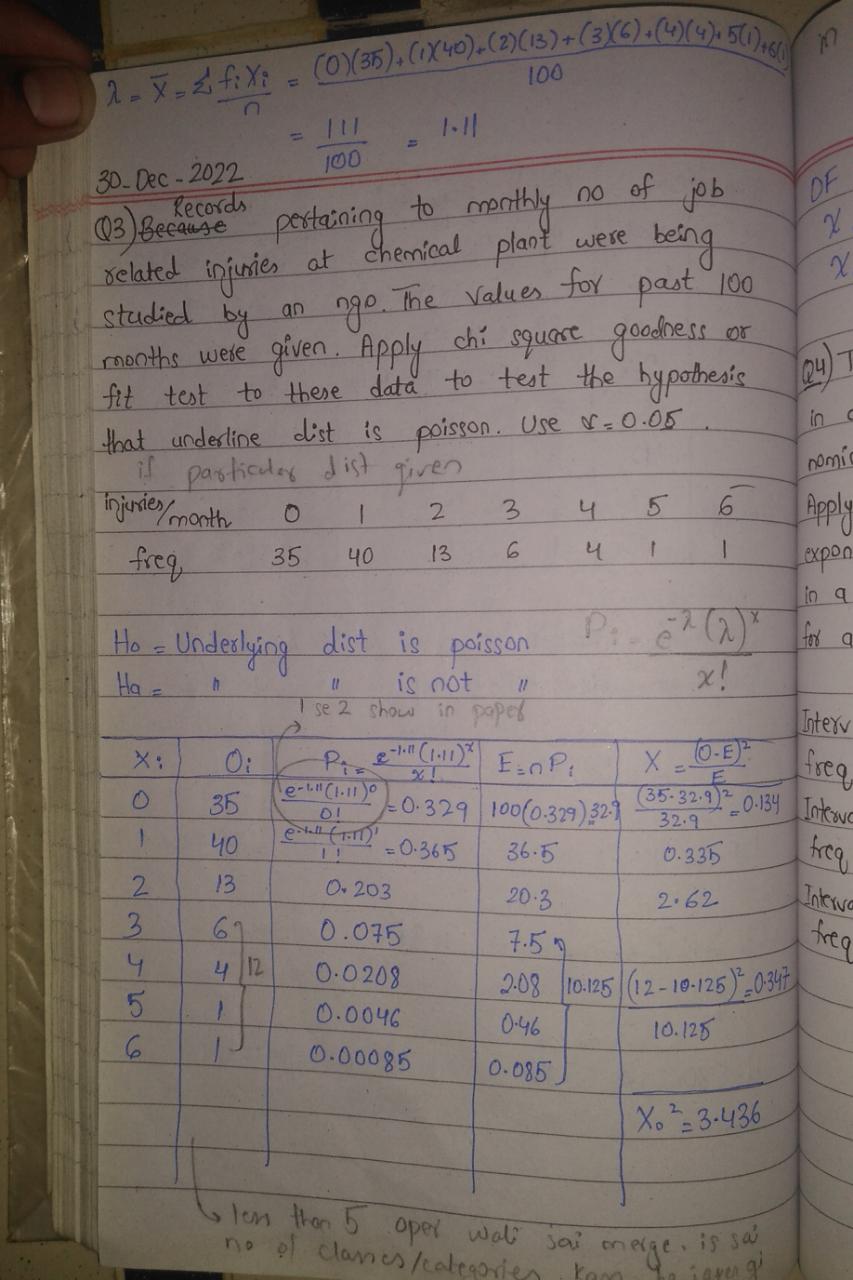 λ = X̄ = Σ fi Xi / n = (0)(35)+(1)(40)+(2)(13)+(3)(6)+(4)(4)+5(1)+6(1) / 100
= 111 / 100 = 1.11
30-Dec-2022
Records
Q3) Because pertaining to monthly no of job
related injuries at chemical plant were being
studied by an ngo. The values for past 100
months were given. Apply chi square goodness or
fit test to these data to test the hypothesis
that underline dist is poisson. Use α = 0.05.
if particular dist given
injuries/month 0 1 2 3 4 5 6
freq 35 40 13 6 4 1 1
Ho = Underlying dist is poisson Pi = e^-λ (λ)^x / x!
Ha = " " is not "
1 se 2 show in paper
Xi Oi Pi = e^-1.11 (1.11)^x / x! E=nPi X = (O-E)² / E
0 35 e^-1.11 (1.11)^0 / 0! = 0.329 100(0.329)=32.9 (35-32.9)² / 32.9 = 0.134
1 40 e^-1.11 (1.11)^1 / 1! = 0.365 36.5 0.335
2 13 0.203 20.3 2.62
3 6 0.075 7.5
4 4 12 0.0208 2.08 10.125 (12-10.125)² = 0.347
5 1 0.0046 0.46 10.125
6 1 0.00085 0.085
X₀² = 3.436
less than 5 oper wali sai merge. is sai
no of classes/categories kam
m
DF
x
x
Q4) T
in
nomi
Apply
expon
in a
for a
Interv
freq
Interv
freq
Interv
freq